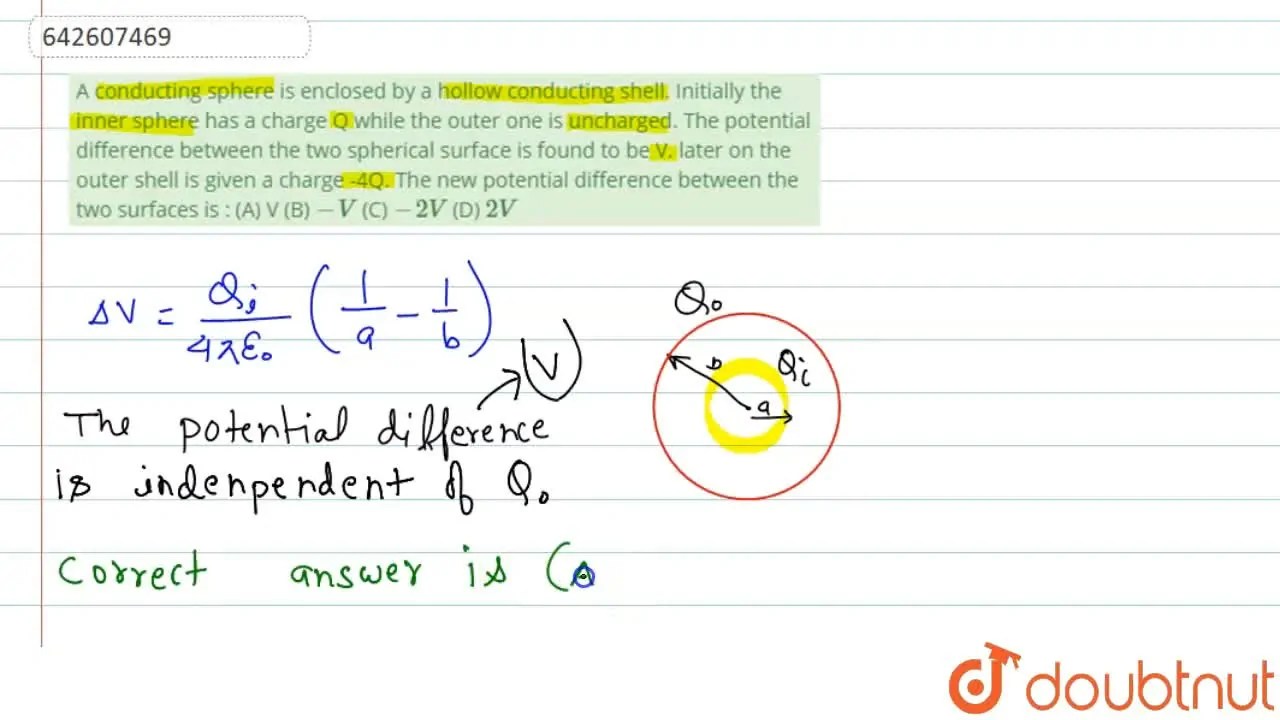 642607469
A conducting sphere is enclosed by a hollow conducting shell. Initially the
inner sphere has a charge Q while the outer one is uncharged. The potential
difference between the two spherical surface is found to be V. later on the
outer shell is given a charge -4Q. The new potential difference between the
two surfaces is : (A) V (B) −V (C) −2V (D) 2V
ΔV = Qi/4πε₀ (1/a − 1/b)
Q₀
b
Qi
a
(V)
The potential difference
is indenpendent of Q₀
Correct answer is (A
doubtnut